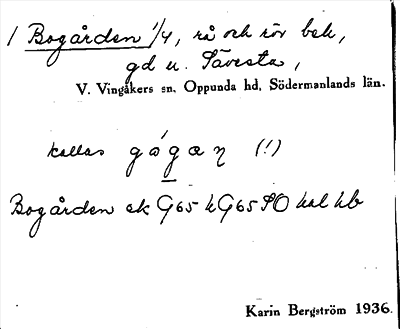 1 Bogården 1/4, rå och rör bek,
gd u. Sävesta,
V. Vingåkers sn. Oppunda hd. Södermanlands län.
kallas (!)
Bogården ek G65 h G65 SO hal hb
Karin Bergström 1936.